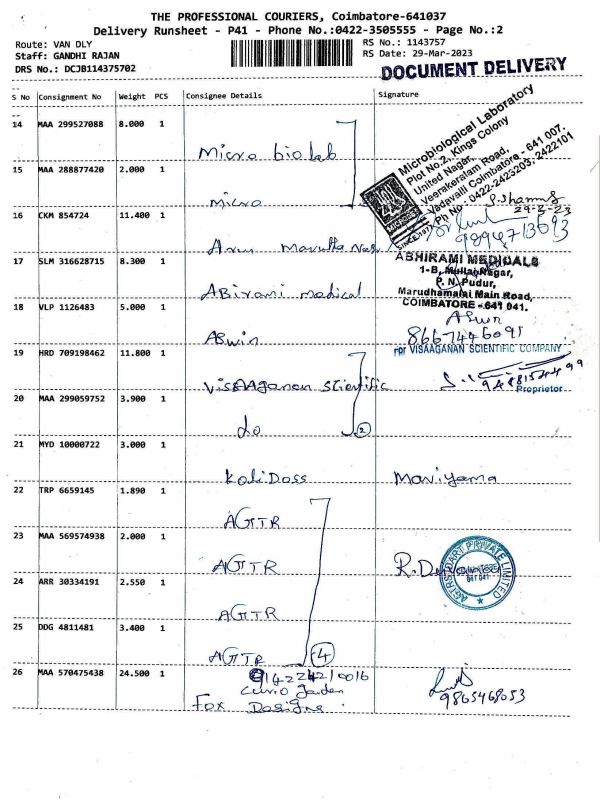 THE PROFESSIONAL COURIERS, Coimbatore-641037
Delivery Runsheet - P41 - Phone No.:0422-3505555 - Page No.:2
Route: VAN DLY
Staff: GANDHI RAJAN
DRS No.: DCJB114375702
RS No.: 1143757
RS Date: 29-Mar-2023
DOCUMENT DELIVERY
S No Consignment No Weight PCS Consignee Details Signature
14 MAA 299527088 8.000 1 Micro bio lab
Microbiological Laboratory
Plot No.2, Kings Colony
United Nagar,
Veerakeralam Road,
Vadavalli Coimbatore - 641 007.
Ph No : 0422-2423203, 2422101
SINCE 1977
15 MAA 288877420 2.000 1 Micro
29-3-23
16 CKM 854724 11.400 1 Arun
9894713693
17 SLM 316628715 8.300 1 ABirami medical
ABHIRAMI MEDICALS
1-B, Mullai Nagar,
P. N. Pudur,
Marudhamalai Main Road,
COIMBATORE - 641 041.
18 VLP 1126483 5.000 1 ASwin
ASwin
8667446091
19 HRD 709198462 11.800 1 VisAAganan Scientific
For VISAAGANAN SCIENTIFIC COMPANY
Proprietor
20 MAA 299059752 3.900 1 do 2
21 MYD 10000722 3.000 1 KaliDoss Mariyama
22 TRP 6659145 1.890 1 AGTTR
23 MAA 569574938 2.000 1 AGTTR
AGTRSDARTI PRIVATE LIMITED
COIMBATORE
641 041
24 ARR 30334191 2.550 1 AGTTR
25 DDG 4811481 3.400 1 AGTTR 4
26 MAA 570475438 24.500 1
Fox Designs
9865468053